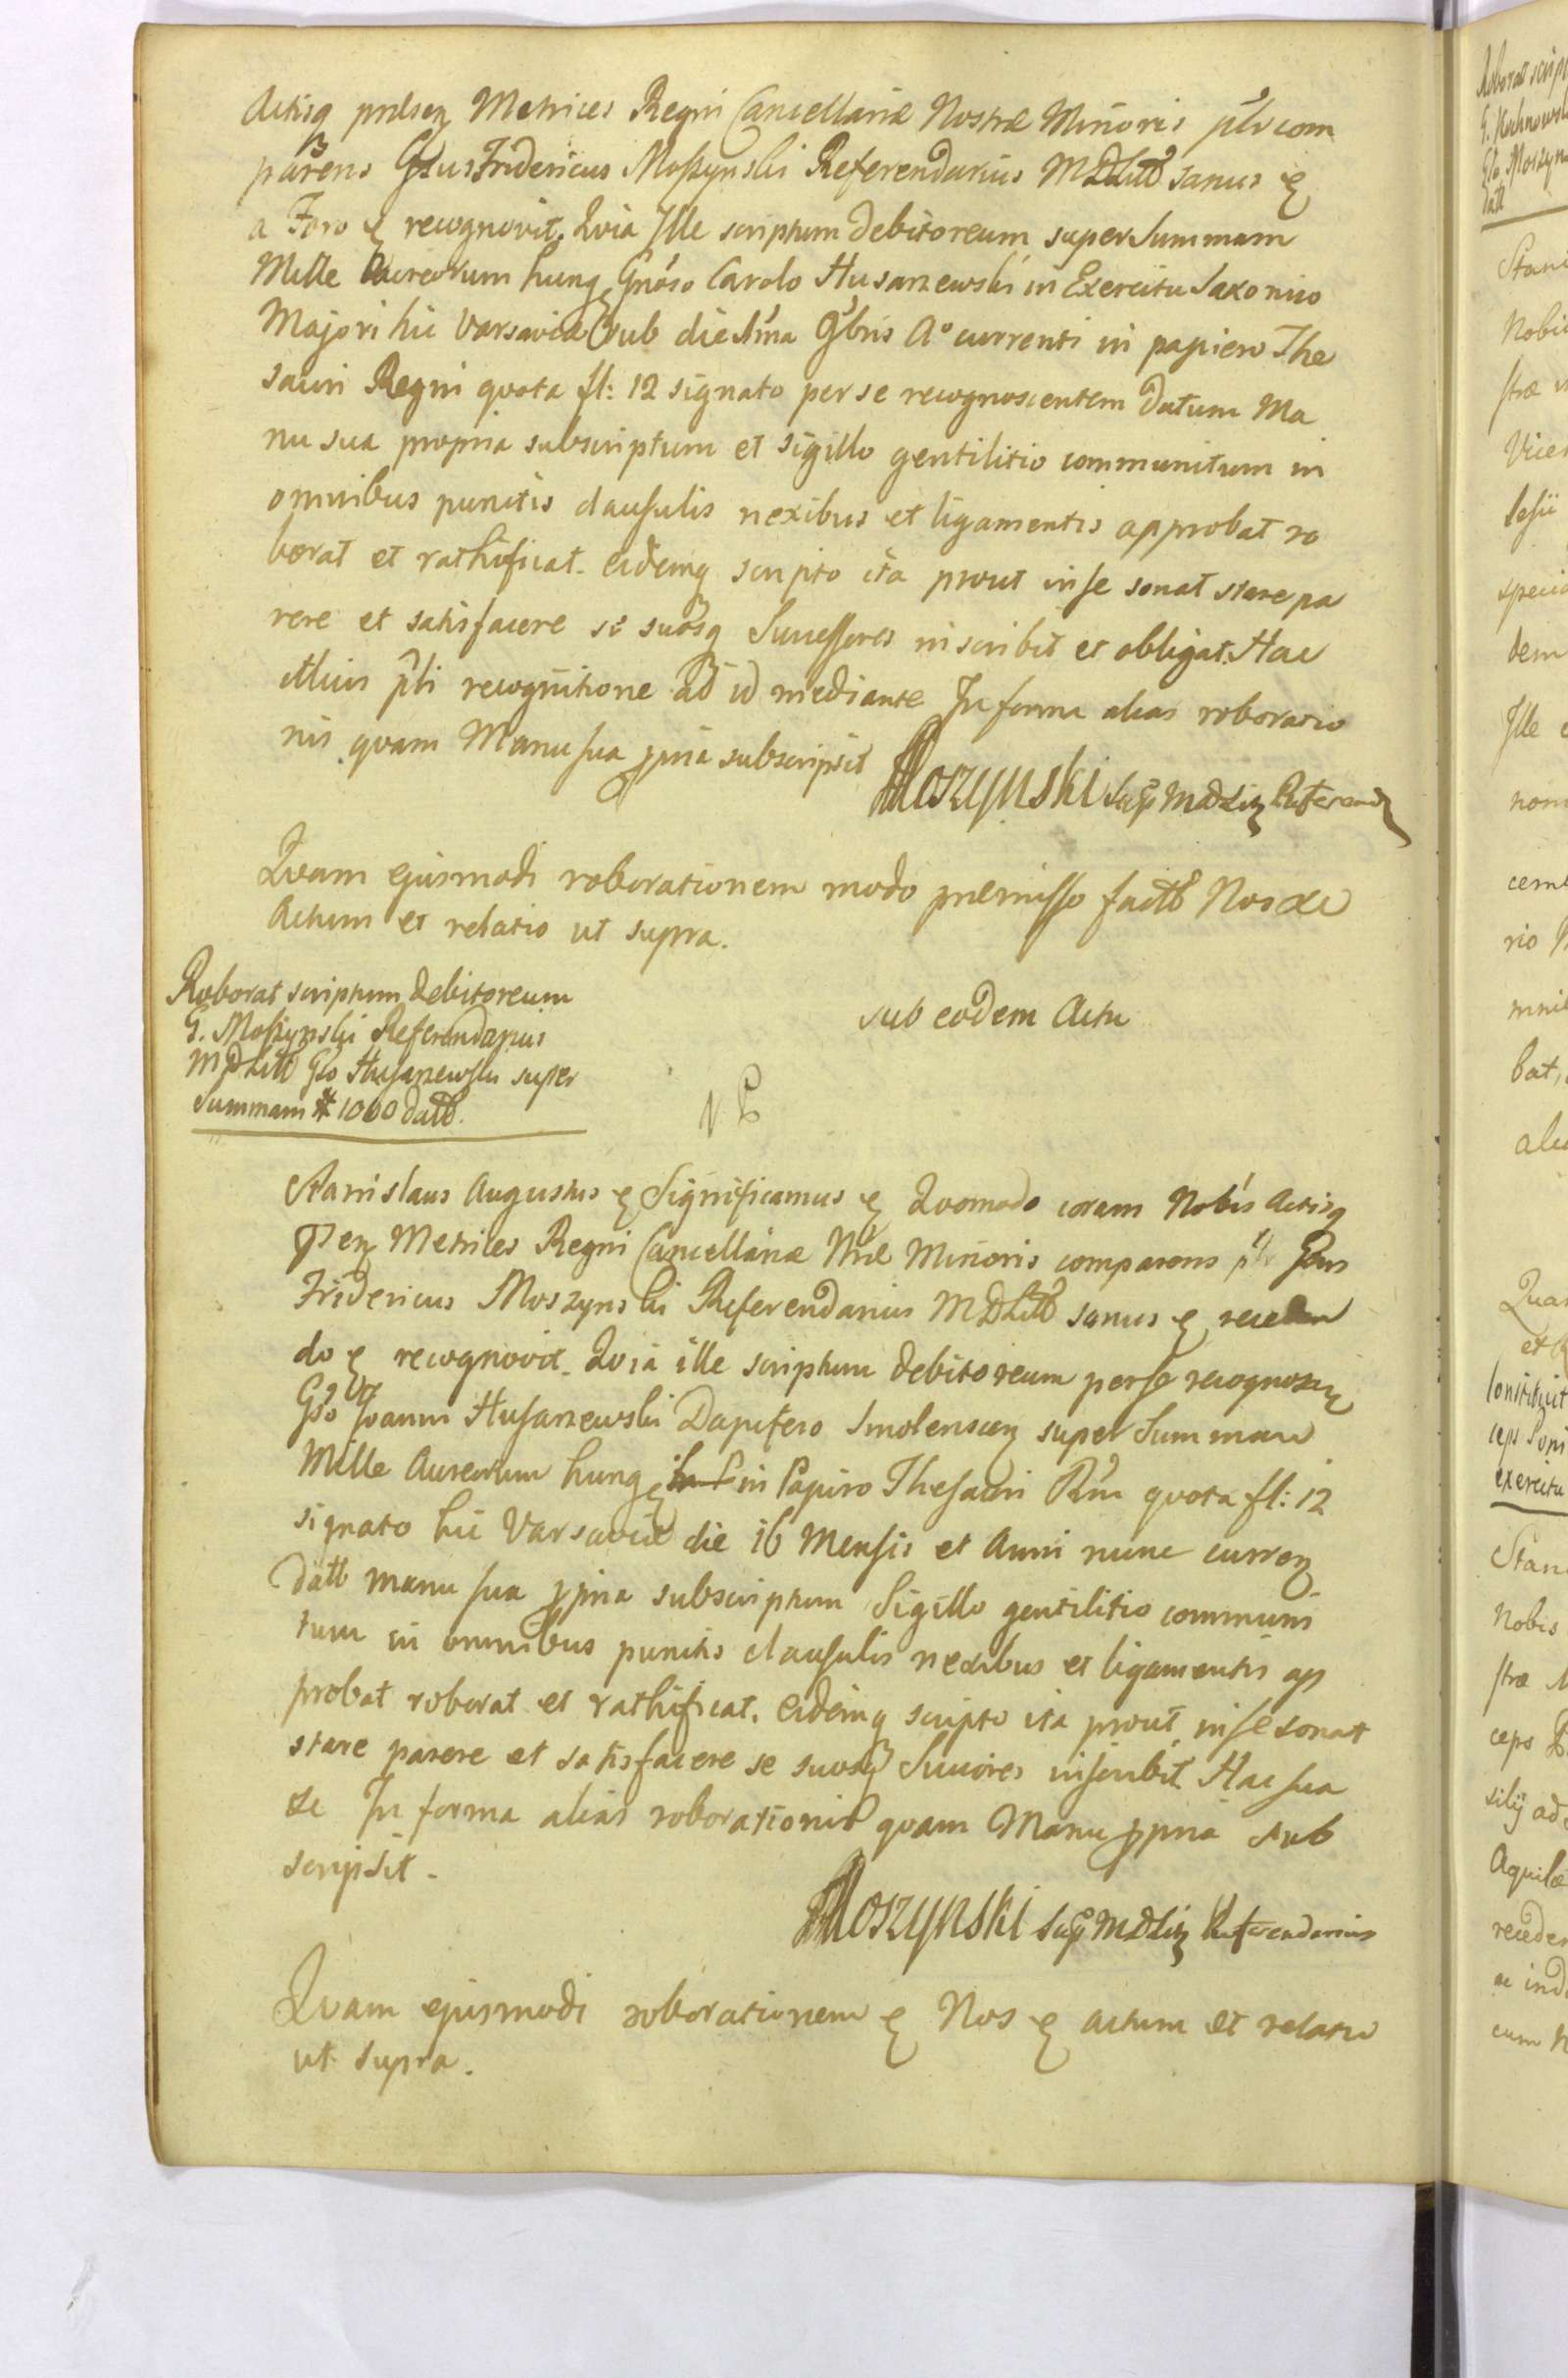 Actisq praesen Metrices Regni Cancellariæ Nostræ Minoris plr com
parens Gsus Fridericus Moszynski Referendarius MDLitt sanus &
a Foro & recognovit. Quia Ille scriptum debitoreum super Summam
Mille Aureorum hung Gnoso Carolo Husarzewski in Exercitu Saxonico
Majori hic Varsaviæ sub die 1ma 9bris A° currenti in papiero The
sauri Regni quota fl: 12 signato per se recognoscentem datum Ma
nu sua propria subscriptum et sigillo gentilitio communitum in
omnibus punctis clausulis nexibus et ligamentis approbat ro
borat et rathificat. eidemq scripto ita prout in se sonat stare pa
rere et satisfacere se suosq Successores inscribit et obligat. Hac
illius pli recognitione ad id mediante In forma alias roboratio
nis quam Manu sua ppria subscripsit
Moszynski Sup MDLit Referend
Quam ejusmodi roborationem modo præmisso factt Nos &c
Actum et relatio ut supra.
Roborat scriptum debitoreum
G. Moszynski Referendarius
MDLitt Gso Husarzewski super
Summam # 1000 datt.
sub eodem Actu
Stanislaus Augustus & Significamus & Quomodo coram Nobis Actisq
Pen Metrices Regni Cancellariæ Nræ Minoris comparens plr Gsus
Fridericus Moszynski Referendarius MDLitt sanus & receden
do & recognovit. Quia ille scriptum debitoreum per se recognoscen
Gso Joanni Husarzewski Dapifero Smolenscen super Summam
Mille Aureorum hung in Papiro Thesauri Rni quota fl: 12
signato hic Varsaviæ die 16 Mensis et Anni nunc curren
datt manu sua ppria subscriptum Sigillo gentilitio communi
tum in omnibus punctis clausulis nexibus et ligamentis ap
probat roborat et rathificat. eidemq scripto ita prout in se sonat
stare parere et satisfacere se suosq Succores inscribit Hac sua
&c In forma alias roborationis quam Manu ppria sub
scripsit.
Moszynski Sup MDLit Referendarius
Quam ejusmodi roborationem & Nos & actum et relatio
ut supra.